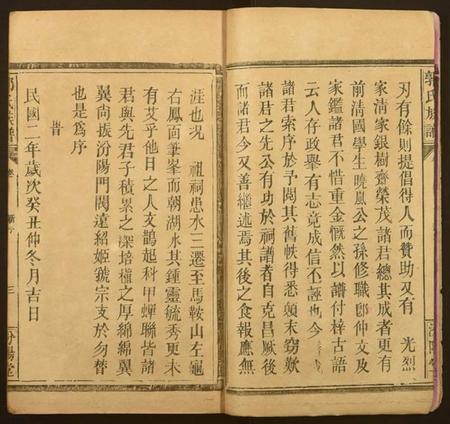 郭氏族譜
刃有餘則提倡得人而贊助又有 光烈
家清家銀樹齋榮茂諸君總其成者更有
前清國學生曉嵐公之孫修職郎仲文及
家鑑諸君不惜重金慨然以譜付梓古語
云人存政舉有志竟成信不誣也今
諸君索序於予閱其舊帙得悉顛末竊歎
諸君之先公有功於祠譜者自克昌厥後
而諸君今又善繼述焉其後之食報應無
涯也况 祖祠患水三遷至馬鞍山左龜
右鳳面筆峯而朝湖水其鍾靈毓秀更未
有艾乎他日之人文鵲起科甲蟬聯皆諸
君與先君子積累之深培植之厚綿綿翼
翼尚振汾陽門閥遠紹姬虢宗支於勿替
也是為序
旹
民國二年歲次癸丑仲冬月吉日
郭氏族譜
卷
序
三
汾陽堂